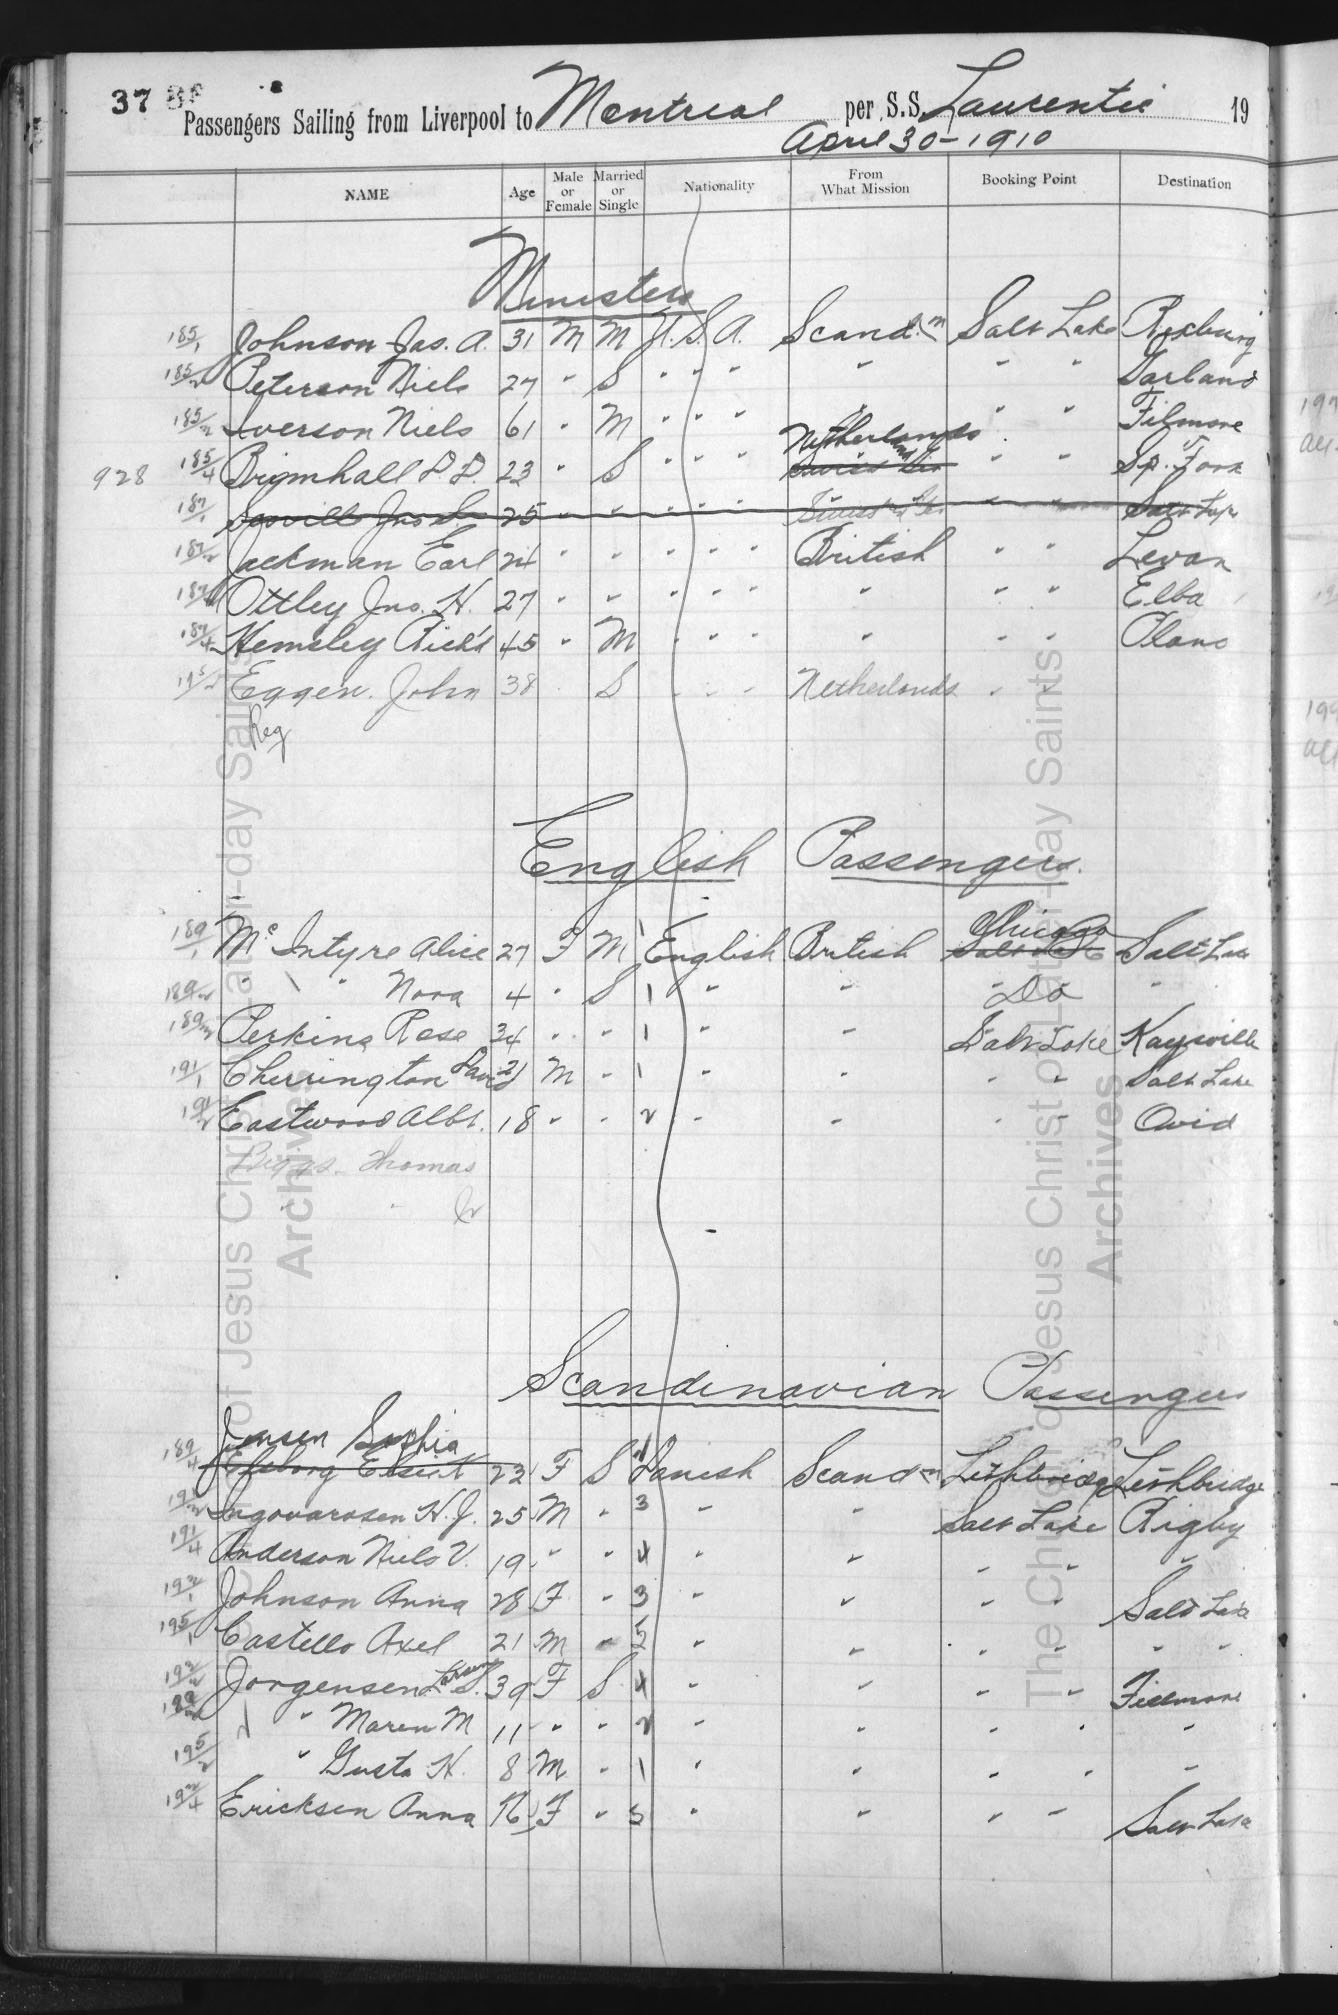 37
Passengers Sailing from Liverpool to Montreal per S.S. Laurentic 19
April 30-1910
NAME Age Male or Female Married or Single Nationality From What Mission Booking Point Destination
Ministers
185/1 Johnson Jas. A. 31 M M U.S.A. Scand. Salt Lake Rexburg
185/2 Peterson Niels 27 " S " " " " " " Garland
185/3 Iverson Niels 61 " M " " " " " " Filmore
928 185/4 Brimhall 23 " S " " " Netherlands " " Sp. Fork
187/1 25 " " " " " " " Salt Lake
187/2 Jackman Earl 24 " " " " " British " " Levan
187/3 Ottley Jno. H. 27 " " " " " " " " Elba
187/4 Hemsley Rich'd 45 " M " " " " " " Plano
Eggen. John 38 S " " " Netherlands " "
Reg
English Passengers
189/1 McIntyre Alice 27 F M 1 English British Chicago Salt Lake
189/2 " " Nora 4 " S 1 " " Do "
189/3 Perkins Rose 34 " " 1 " " Salt Lake Kaysville
191/1 Cherrington David 21 M " 1 " " " " Salt Lake
191/2 Eastwood Albt. 18 " " 2 " " " " Ovid
Biggs. Thomas
Jr
Scandinavian Passengers
Jensen Sophia
189/4 23 F S 1 Danish Scand Lethbridge Lethbridge
Ingvarosen H. J. 25 M " 3 " " Salt Lake Rigby
191/4 Anderson Niels V. 19 " " 4 " " " " "
193/1 Johnson Anna 28 F " 3 " " " " Salt Lake
195/1 Castello Axel 21 M " 5 " " " " " "
193/2 Jorgensen Larsine 39 F S 4 " " " " Fillmore
" Maren M 11 " " 2 " " " " "
195/2 " Gusta H. 8 M " 1 " " " " "
193/4 Ericksen Anna 16 F " 5 " " " " Salt Lake
The Church of Jesus Christ of Latter-day Saints
Archives
The Church of Jesus Christ of Latter-day Saints
Archives